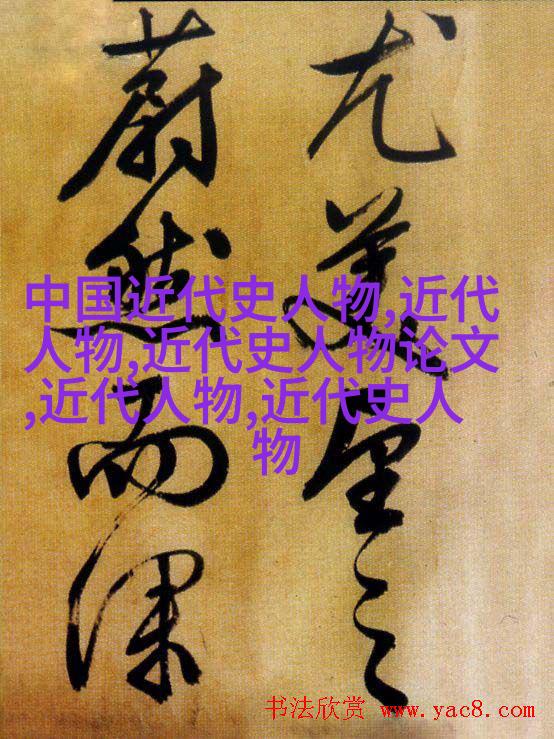 尤美望之
蔚然而深
中国近代史人物,近代
人物,近代史人物论文
,近代人物,近代史人
物
书法欣赏 www.yac8.com